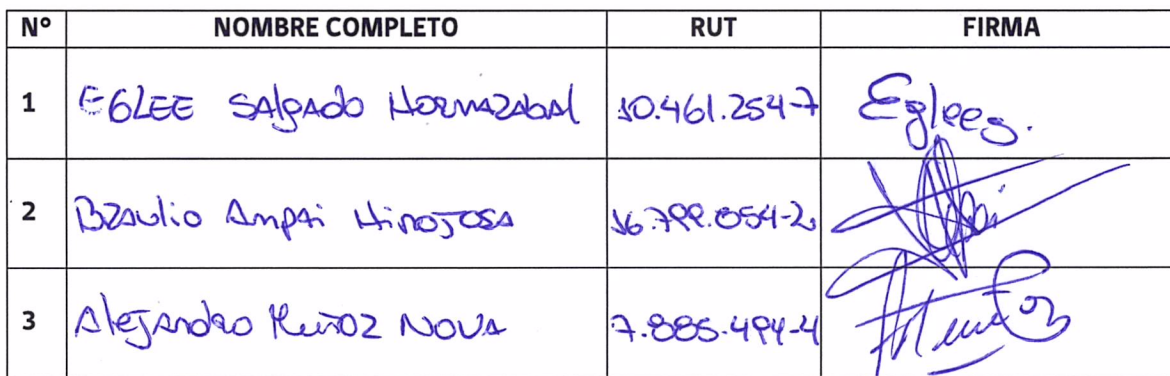 N° NOMBRE COMPLETO RUT FIRMA
1 EGLEE SALgADO HORMAZABAL 10.461.254-7 Eglees.
2 BRAULIO Ampai HINOJOSA 16.799.854-2
3 Alejandro Muñoz NOVA 7.885.494-4